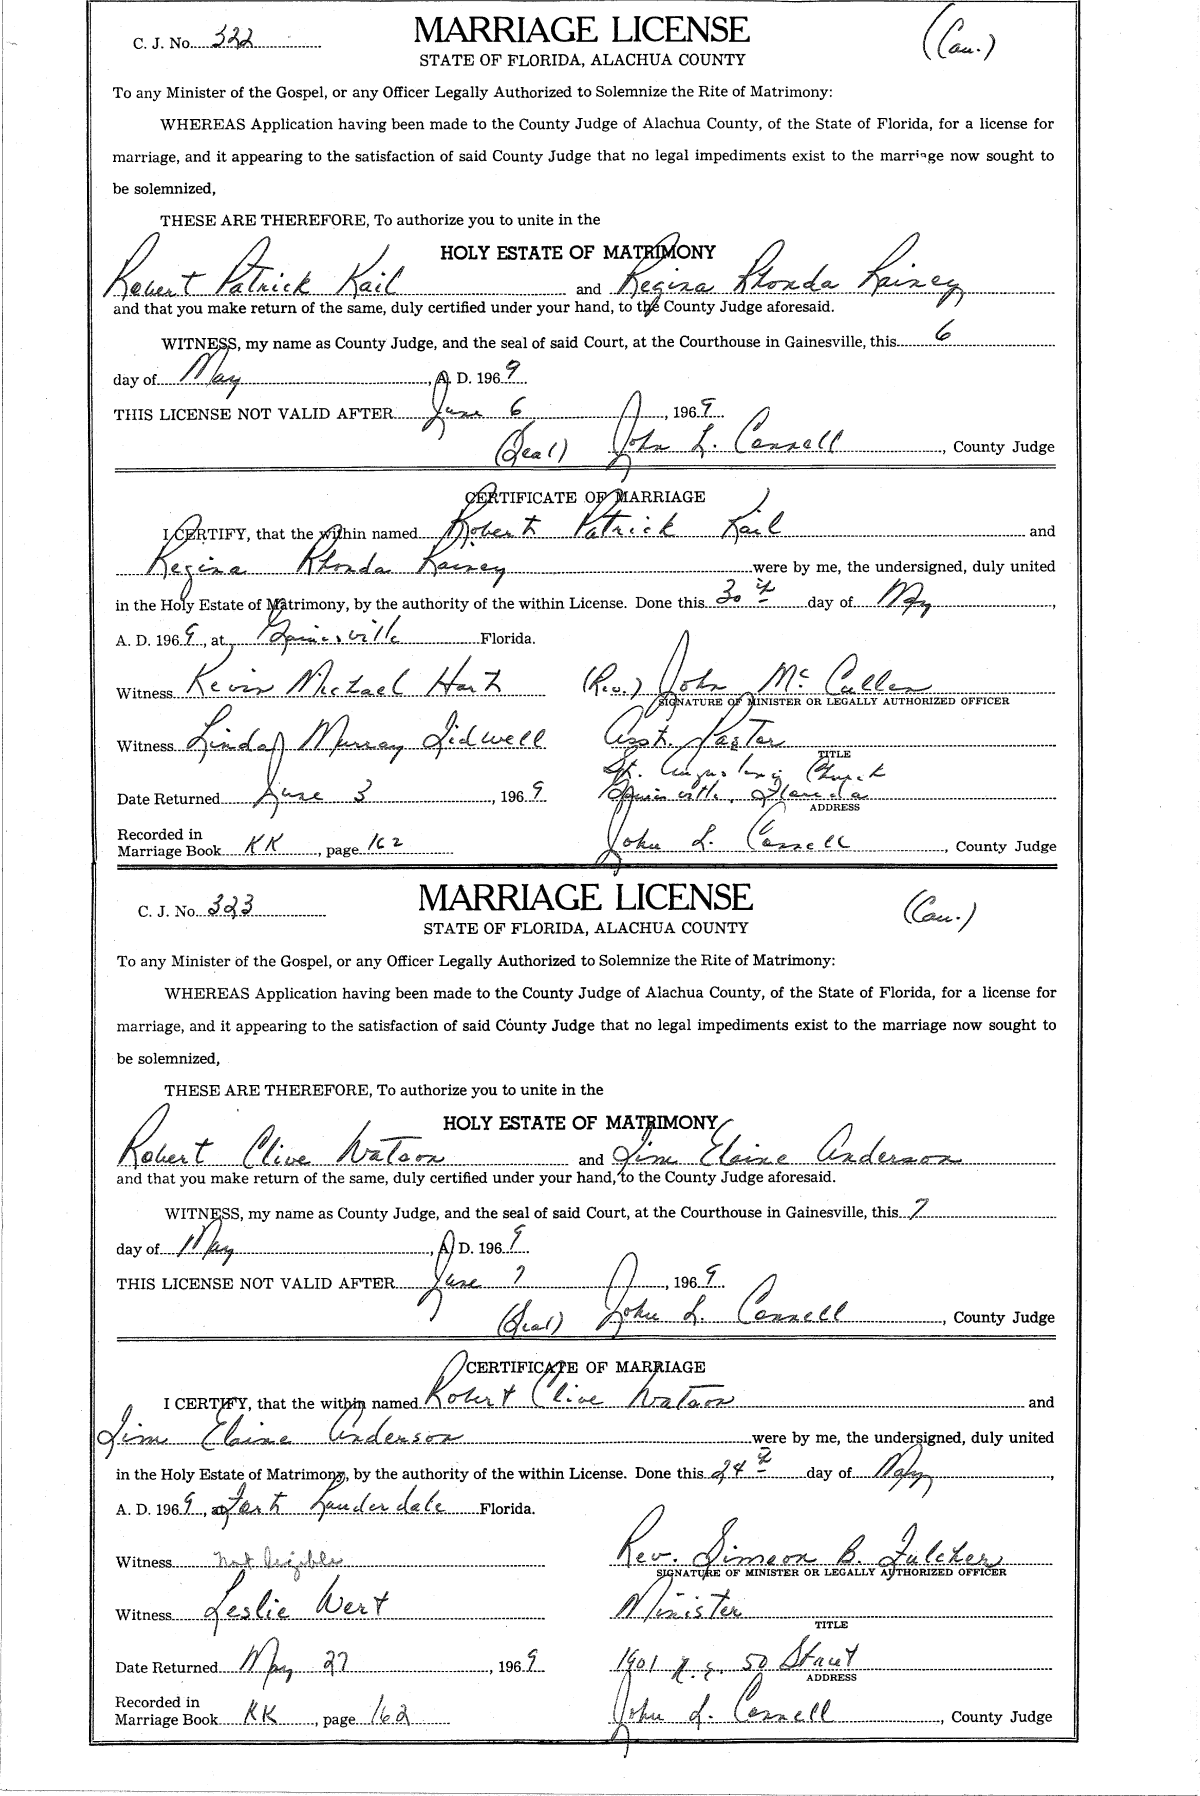 C. J. No. 322
MARRIAGE LICENSE
(Cau.)
STATE OF FLORIDA, ALACHUA COUNTY
To any Minister of the Gospel, or any Officer Legally Authorized to Solemnize the Rite of Matrimony:
WHEREAS Application having been made to the County Judge of Alachua County, of the State of Florida, for a license for
marriage, and it appearing to the satisfaction of said County Judge that no legal impediments exist to the marriage now sought to
be solemnized,
THESE ARE THEREFORE, To authorize you to unite in the
HOLY ESTATE OF MATRIMONY
Robert Patrick Kail and Regina Rhonda Rainey
and that you make return of the same, duly certified under your hand, to the County Judge aforesaid.
WITNESS, my name as County Judge, and the seal of said Court, at the Courthouse in Gainesville, this 6
day of May, A. D. 1969
THIS LICENSE NOT VALID AFTER June 6, 1969
(Seal) John L. Connell, County Judge
CERTIFICATE OF MARRIAGE
I CERTIFY, that the within named Robert Patrick Kail and
Regina Rhonda Rainey were by me, the undersigned, duly united
in the Holy Estate of Matrimony, by the authority of the within License. Done this 30th day of May,
A. D. 1969, at Gainesville Florida.
Witness Kevin Michael Hart (Rev.) John McCullen
SIGNATURE OF MINISTER OR LEGALLY AUTHORIZED OFFICER
Witness Linda Murray Sidwell Asst. Pastor
TITLE
St. Augustine Church
Date Returned June 3, 1969 Gainesville, Florida
ADDRESS
Recorded in
Marriage Book KK, page 162 John L. Connell, County Judge
C. J. No. 323
MARRIAGE LICENSE
(Cau.)
STATE OF FLORIDA, ALACHUA COUNTY
To any Minister of the Gospel, or any Officer Legally Authorized to Solemnize the Rite of Matrimony:
WHEREAS Application having been made to the County Judge of Alachua County, of the State of Florida, for a license for
marriage, and it appearing to the satisfaction of said County Judge that no legal impediments exist to the marriage now sought to
be solemnized,
THESE ARE THEREFORE, To authorize you to unite in the
HOLY ESTATE OF MATRIMONY
Robert Clive Watson and Sim Elaine Anderson
and that you make return of the same, duly certified under your hand, to the County Judge aforesaid.
WITNESS, my name as County Judge, and the seal of said Court, at the Courthouse in Gainesville, this 7
day of May, A. D. 1969
THIS LICENSE NOT VALID AFTER June 7, 1969
(Seal) John L. Connell, County Judge
CERTIFICATE OF MARRIAGE
I CERTIFY, that the within named Robert Clive Watson and
Sim Elaine Anderson were by me, the undersigned, duly united
in the Holy Estate of Matrimony, by the authority of the within License. Done this 24th day of May,
A. D. 1969, at Fort Lauderdale Florida.
Witness not legible Rev. Simeon B. Fulcher
SIGNATURE OF MINISTER OR LEGALLY AUTHORIZED OFFICER
Witness Leslie Wert Minister
TITLE
Date Returned May 27, 1969 1901 N. E. 50 Street
ADDRESS
Recorded in
Marriage Book KK, page 162 John L. Connell, County Judge